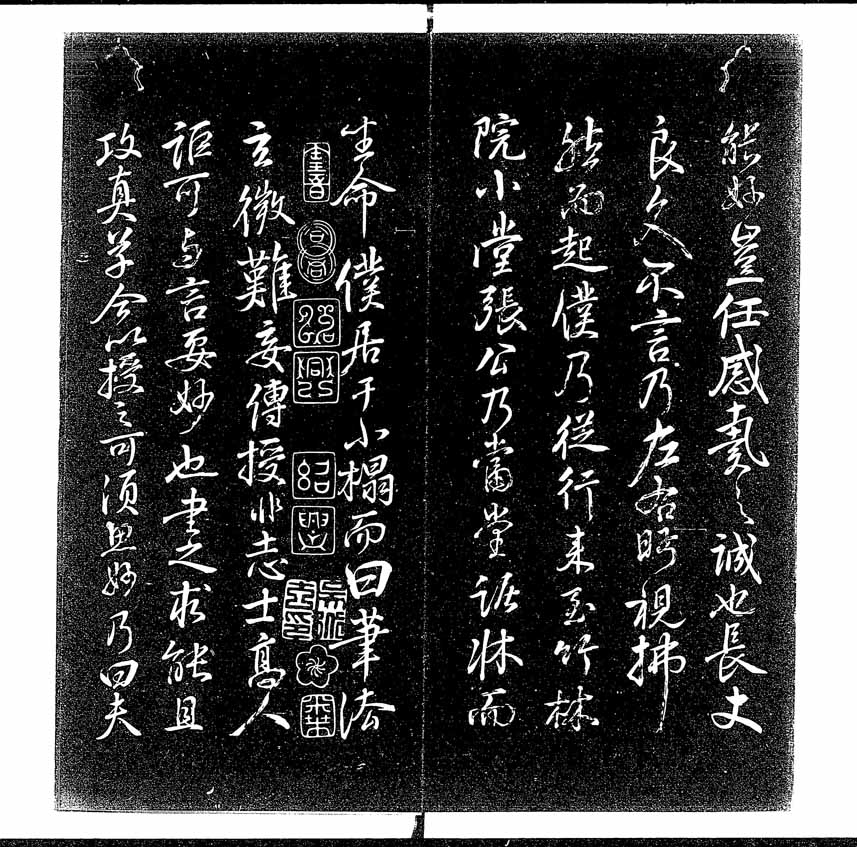 能妙豈任感戴之誠也長史
良久不言乃左右眄視拂
然而起僕乃從行來至竹林
院小堂張公乃當堂踞牀而
生命僕居于小榻而曰筆法
玄微難妄傳授非志士高人
詎可與言要妙也書之求能且
攻真草今以授之可須思妙乃曰夫
紹興
紹興